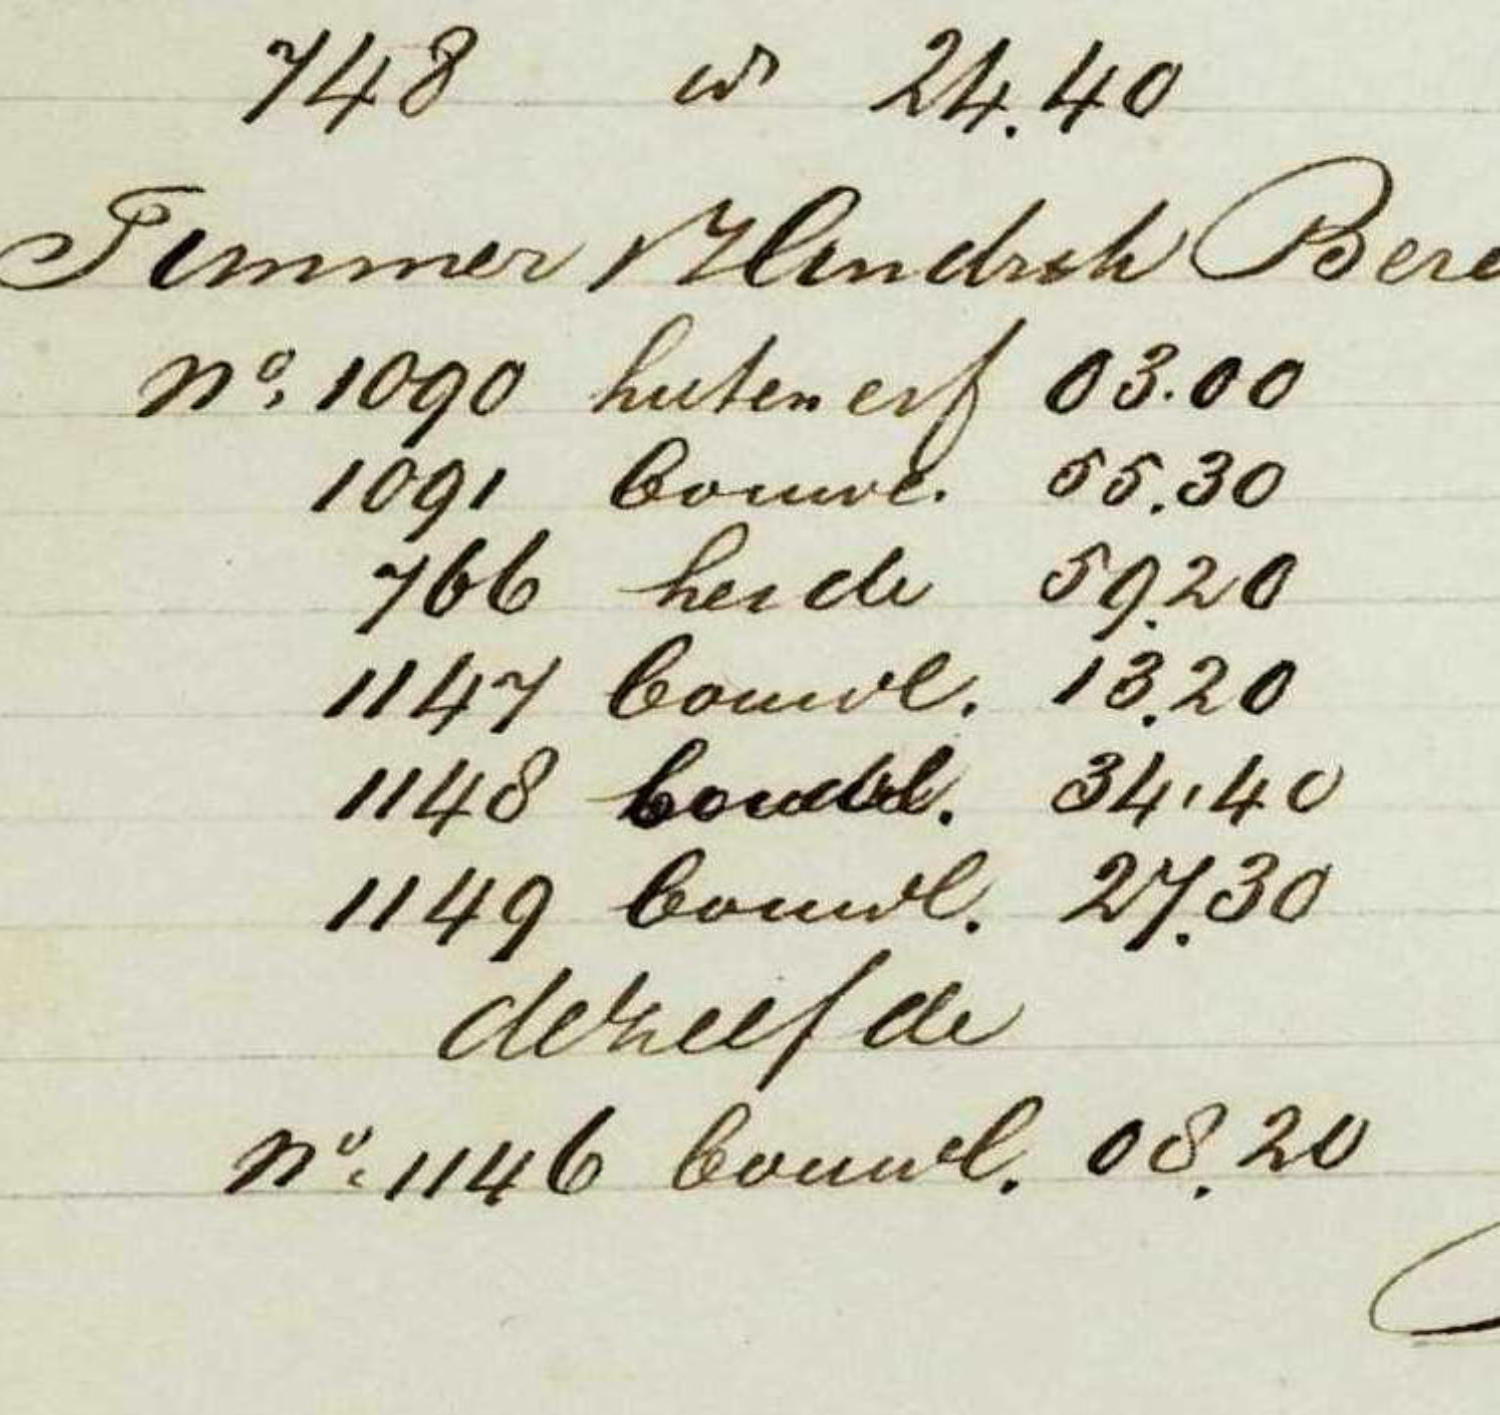 748 w 24.40
Temmer Hendrik Bere
no. 1090 huis en erf 03.00
1091 bouwl. 55.30
766 heide 59.20
1147 bouwl. 13.20
1148 bouwl. 34.40
1149 bouwl. 27.30
dezelfde
no. 1146 bouwl. 08.20